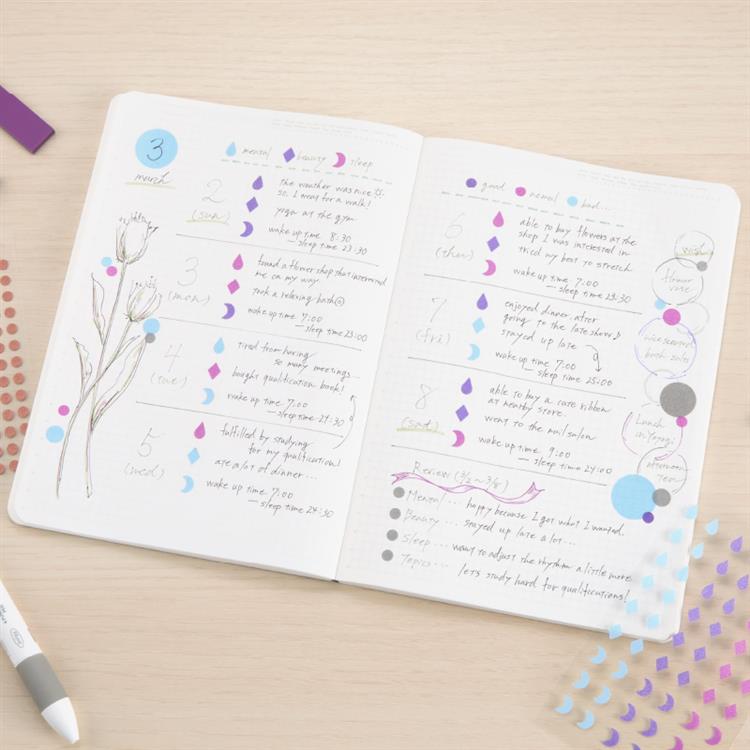 3
march
mental beauty sleep
2
(sun)
the weather was nice
so, I went for a walk!
yoga at the gym
wake up time 8:30
sleep time 23:30
3
(mon)
found a flower shop that interested
me on my way
took a relaxing bath
wake up time 7:00
sleep time 23:00
4
(tue)
tired from having
so many meetings...
bought qualification book!
wake up time 7:00
sleep time 24:30
5
(wed)
fulfilled by studying
for my qualification!
ate a lot of dinner...
wake up time 7:00
sleep time 24:30
good normal bad...
6
(thu)
able to buy flowers at the
shop I was interested in
tried my best to stretch
wake up time 7:00
sleep time 23:30
7
(fri)
enjoyed dinner after
going to the late show♪
stayed up late
wake up time 7:00
sleep time 25:00
8
(sat)
able to buy a rare ribbon
at nearby store.
went to the nail salon
wake up time 9:00
sleep time 24:00
Review (3/2~3/8)
Mental... happy because I got what I wanted.
Beauty... stayed up late a lot...
Sleep... want to adjust the rhythm a little more
Topics... let's study hard for qualifications!
wish
flower
vase
nice scented
bath salts
Lunch
afternoon
tea